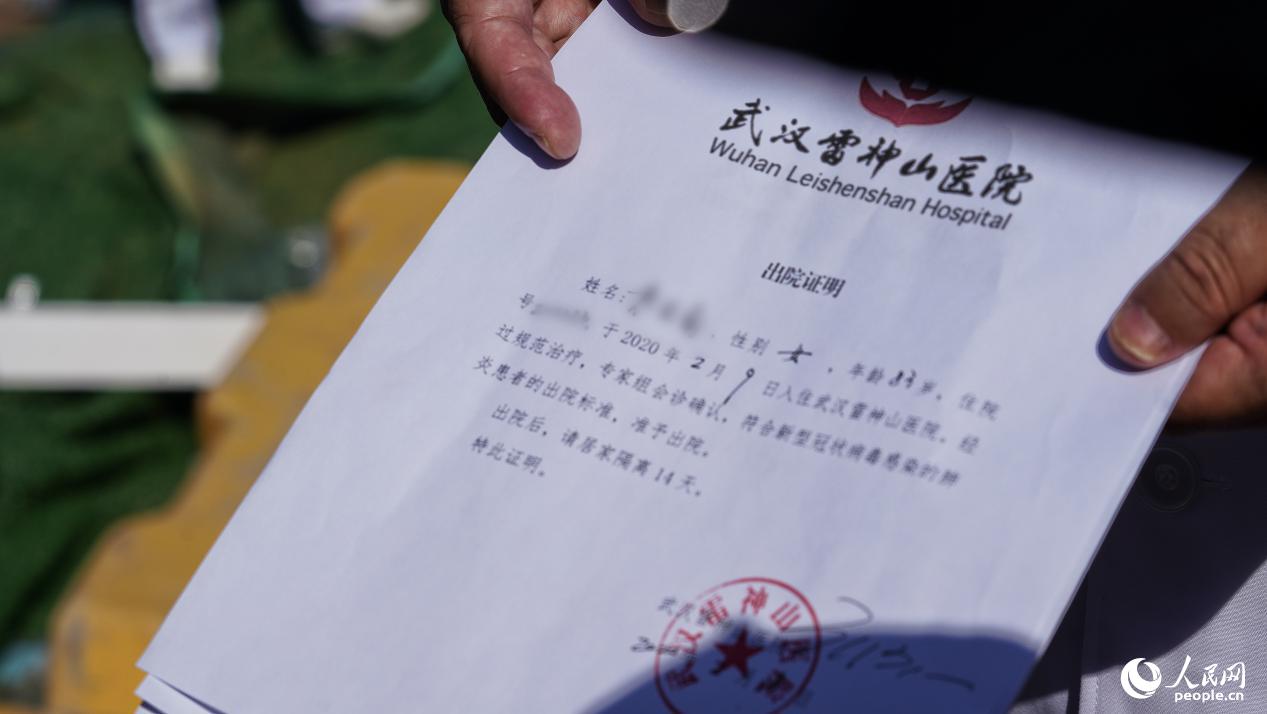 武汉雷神山医院
Wuhan Leishenshan Hospital
出院证明
姓名： 性别 女 ，年龄 岁，住院
号 于2020年2月9日入住武汉雷神山医院，经
过规范治疗，专家组会诊确认，符合新型冠状病毒感染的肺
炎患者的出院标准，准予出院。
出院后，请居家隔离14天。
特此证明。
武汉雷神山医院
人民网
people.cn